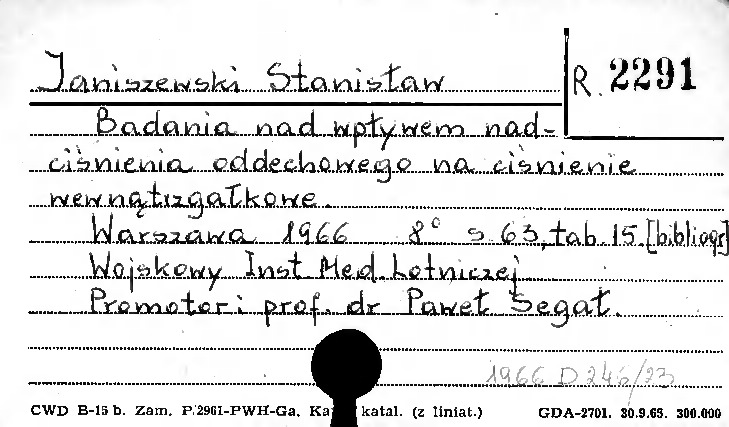 Janiszewski Stanisław
R. 2291
Badania nad wpływem nad-
ciśnienia oddechowego na ciśnienie
wewnątrzgałkowe.
Warszawa 1966 8° s 63, tab. 15. [bibliogr]
Wojskowy Inst Med. Lotniczej
Promotor: prof. dr Paweł Segał.
1966 D 246/23
CWD B-15 b. Zam. P/2961-PWH-Ga. Ka katal. (z liniat.) GDA-2701. 30.9.63. 300.000